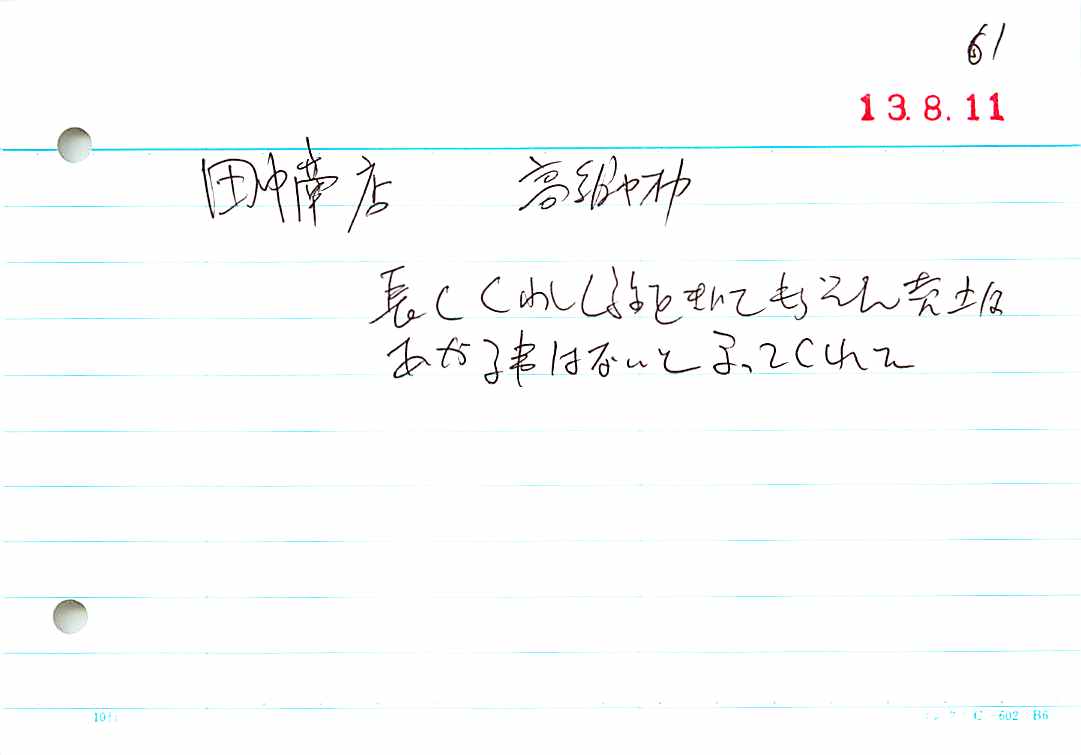 61
13.8.11
田中薬店 高級
長くくわしく話をきいてもらえた売上は
あがる事はないと言ってくれた
602 B6